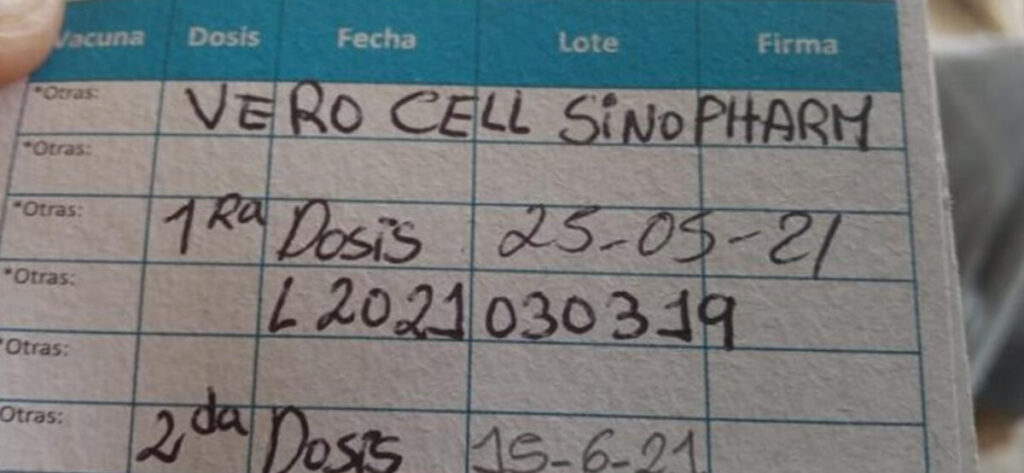 Vacuna Dosis Fecha Lote Firma
*Otras: VERO CELL SiNOPHARM
*Otras:
*Otras: 1Ra Dosis 25-05-21
*Otras: L2021030319
*Otras:
Otras: 2da Dosis 15-6-21